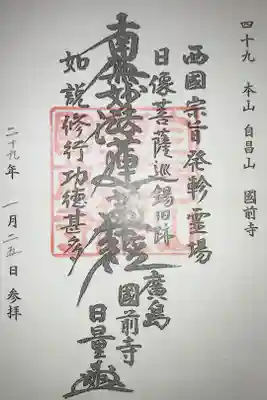 四十九 本山 自昌山 國前寺
西國宗門発軫霊場
日像菩薩巡錫旧跡
廣島
國前寺
南無妙法蓮華経
日量
如説修行功徳甚多
二十九年 一月二五日参拝